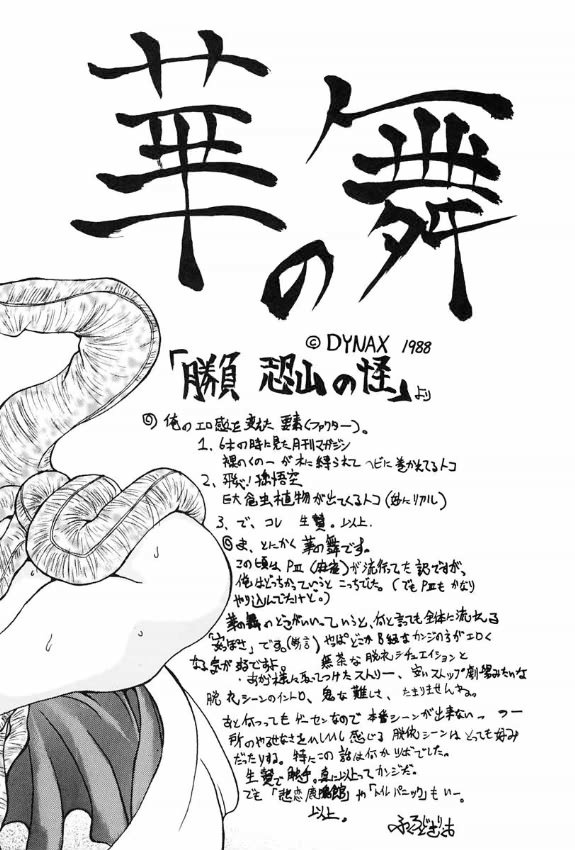 華の舞
© DYNAX 1988
「勝負 恐山の怪」より
◎俺のエロ感を変えた要素(ファクター)。
1、6才の時に見た月刊マガジン
裸のくの一が木に縛られてヘビに巻かれてるトコ
2、飛べ!孫悟空
巨大食虫植物が出てくるトコ(妙にリアル)
3、で、コレ 生贄。以上.
◎ま、とにかく華の舞です。
この頃はPⅢ(麻雀)が流行てた訳ですが、
俺はどっちかっていうとこっちでした。(でもPⅢもかなり
やり込んでたけど。)
華の舞のどこがいいっていうと、何と言っても全体に流れる
です。(断言)やっぱどこかB級なカンジの方がエロく
なる気が好ですよ。 無茶な脱衣シチュエイションと
取ってつけたストリー、安いストップ劇場みたいな
脱衣シーンのイントロ、鬼な難しさ、たまりませんなぁ。
あと何つってもゲーセンなので本番シーンが出来ないっつー
所のやるせなさをひしひし感じる脱衣シーンはとっても好み
だったりする。特にこの話は何かりばでした。
生贄で触手。真に以上ってカンジだ。
でも「悲恋鹿鳴館」や「トイレパニック」もいー。
以上。